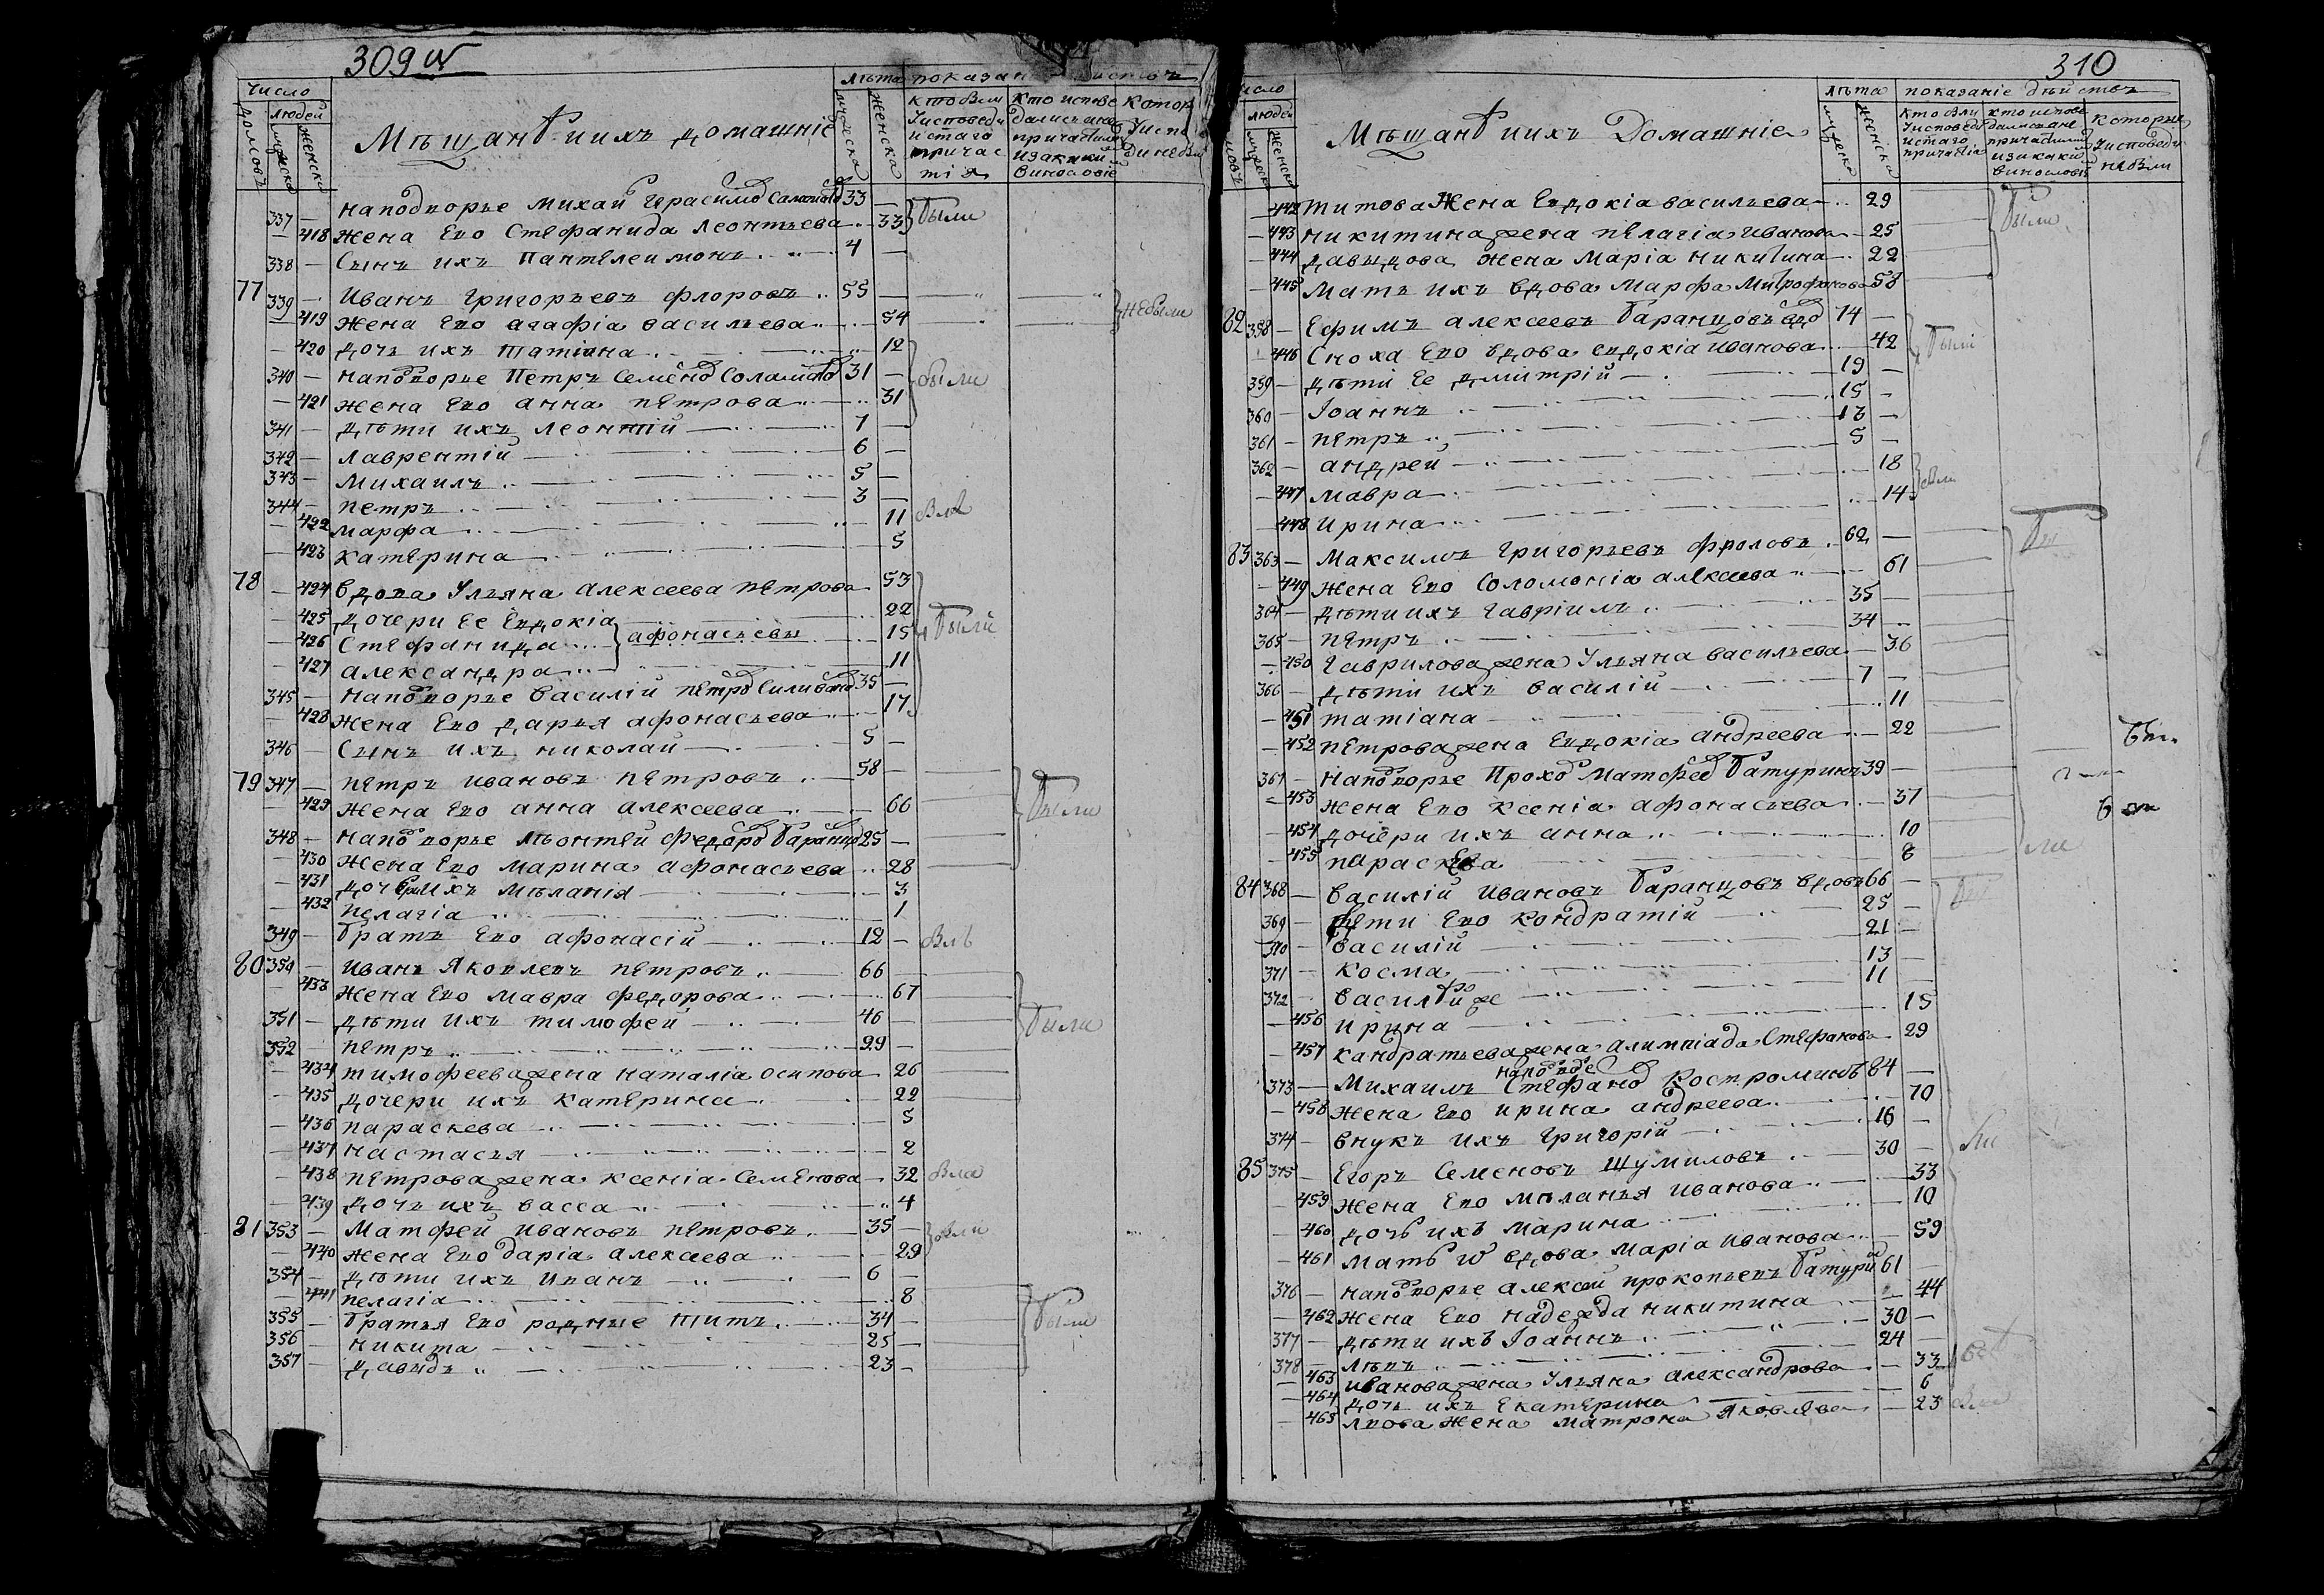 309
число
людей
домовъ
мужеска
женска
Мѣщанъ иихъ домашніе
лѣта
мужеска
женска
показан
кто были
Уисповеди
истаго
причас
тія
кто испове
дались а не
причастили
изакаки
винословіе
котор
Уиспо
337 — наподворье Михай Герасимо 33 —
— 418 Жена Ево Стефанида Леонтьева — 33 были
338 — Сынъ ихъ Пантелеимонъ 4 —
77 339 — Иванъ Григорьевъ Флоровъ 55 — небыли
— 419 Жена Ево агафіа васильева — 54
— 420 дочь ихъ татиана 12
340 — наподворье Петръ Семено 31 — были
— 421 Жена Ево анна петрова 31
341 — дѣти ихъ леонтій 7 —
342 — лаврентій 6 —
343 — михаилъ 5 —
344 — петръ 3 —
— 422 марфа 11
— 423 катерина 5
78 — 424 вдова Ульяна алексеева петрова 53
— 425 дочери ее Евдокіа 22
— 426 Стефанида афонасьевы 15 были
— 427 александра 11
345 — наподворье василій петро Силивано 35 —
— 428 Жена Ево дарья афонасьева 17
346 — Сынъ ихъ николай 5 —
79 347 — петръ ивановъ петровъ 58 —
— 429 Жена Ево анна алексеева 66 были
348 — наподворье леонтей федоро 25 —
— 430 Жена Ево марина афонасьева 28
— 431 дочери ихъ мѣланія 3
— 432 пелагіа 1
349 — братъ Ево афонасій 12 —
80 350 — Иванъ Яковлевъ петровъ 66
— 433 Жена Ево мавра федорова 67
351 — дѣти ихъ тимофей 46 — были
352 — петръ 29 —
— 434 тимофеева жена наталіа осипова 26
— 435 дочери ихъ катерина 22
— 436 параскева 5
— 437 настасья 2
— 438 петрова жена ксеніа Семенова 32
— 439 дочь ихъ васса 4
81 353 — Матфей ивановъ петровъ 35 —
— 440 жена Ево даріа алексеева 29
354 — дѣти ихъ иванъ 6 —
— 441 пелагіа 8
355 — братья Ево родные титъ 34 —
356 — никита 25 —
357 — давыдъ 23 —
310
число
людей
женска
Мѣщанъ иихъ Домашніе
лѣта
мужеска
женска
показаніе дѣйствъ
кто были
Уисповеди
истаго
причастіа
кто испове
дались а не
причастили
изакаки
винословіе
которые
Уисповеди
небыли
— 442 титова Жена Евдокіа васильева 29
— 443 никитина жена пелагіа иванова 25 были
— 444 давыдова жена маріа никитина 22
— 445 Мать ихъ вдова марфа Митрофанова 58
82 358 — Ефимъ алексеевъ баранцовъ 74 —
— 446 Сноха Ево вдова евдокіа иванова 42
359 — дѣти ее дмитрій 19 —
360 — Іоаннъ 15 —
361 — петръ 13 —
362 — андрей 5 —
— 447 мавра 18
— 448 ирина 14
83 363 — Максимъ Григорьевъ фроловъ 62 —
— 449 Жена Ево Соломоніа алексеева 61
364 — дѣти ихъ гавріилъ 35 —
365 — петръ 34
— 450 гаврилова жена Ульяна васильева 36
366 — дѣти ихъ василій 7 —
— 451 татіана 11
— 452 петрова жена Евдокіа андреева 22
367 — наподворье Прохо Матфее батуринъ 39 —
— 453 Жена Ево ксеніа афонасьева 37
— 454 дочери ихъ анна 10
— 455 параскева 8
84 368 — василій ивановъ баранцовъ вдовъ 66 —
369 — дети Ево кондратій 25 —
370 — василій 21 —
371 — косма 13 —
372 — василій 11 —
— 456 ирина 15
— 457 кандратьева жена алимпіада Стефанова 29
373 — Михаилъ Стефано Костроминъ 84 —
— 458 Жена Ево ирина андреева 70
374 — внукъ ихъ григорій 16 —
85 375 — Егоръ Семеновъ Шумиловъ 30 —
— 459 Жена Ево мѣланья иванова 33
— 460 дочь ихъ марина 10
— 461 мать вдова маріа иванова 59
376 — наподворье алексей прокопьевъ батури 61 —
— 462 Жена Ево надежда никитина 44
377 — дѣти ихъ Іоаннъ 30 —
378 — лѣвъ 24 —
— 463 иванова жена Ульяна александрова 33
— 464 дочь ихъ Екатерина 6
— 465 лвова жена матрона яковлева 23